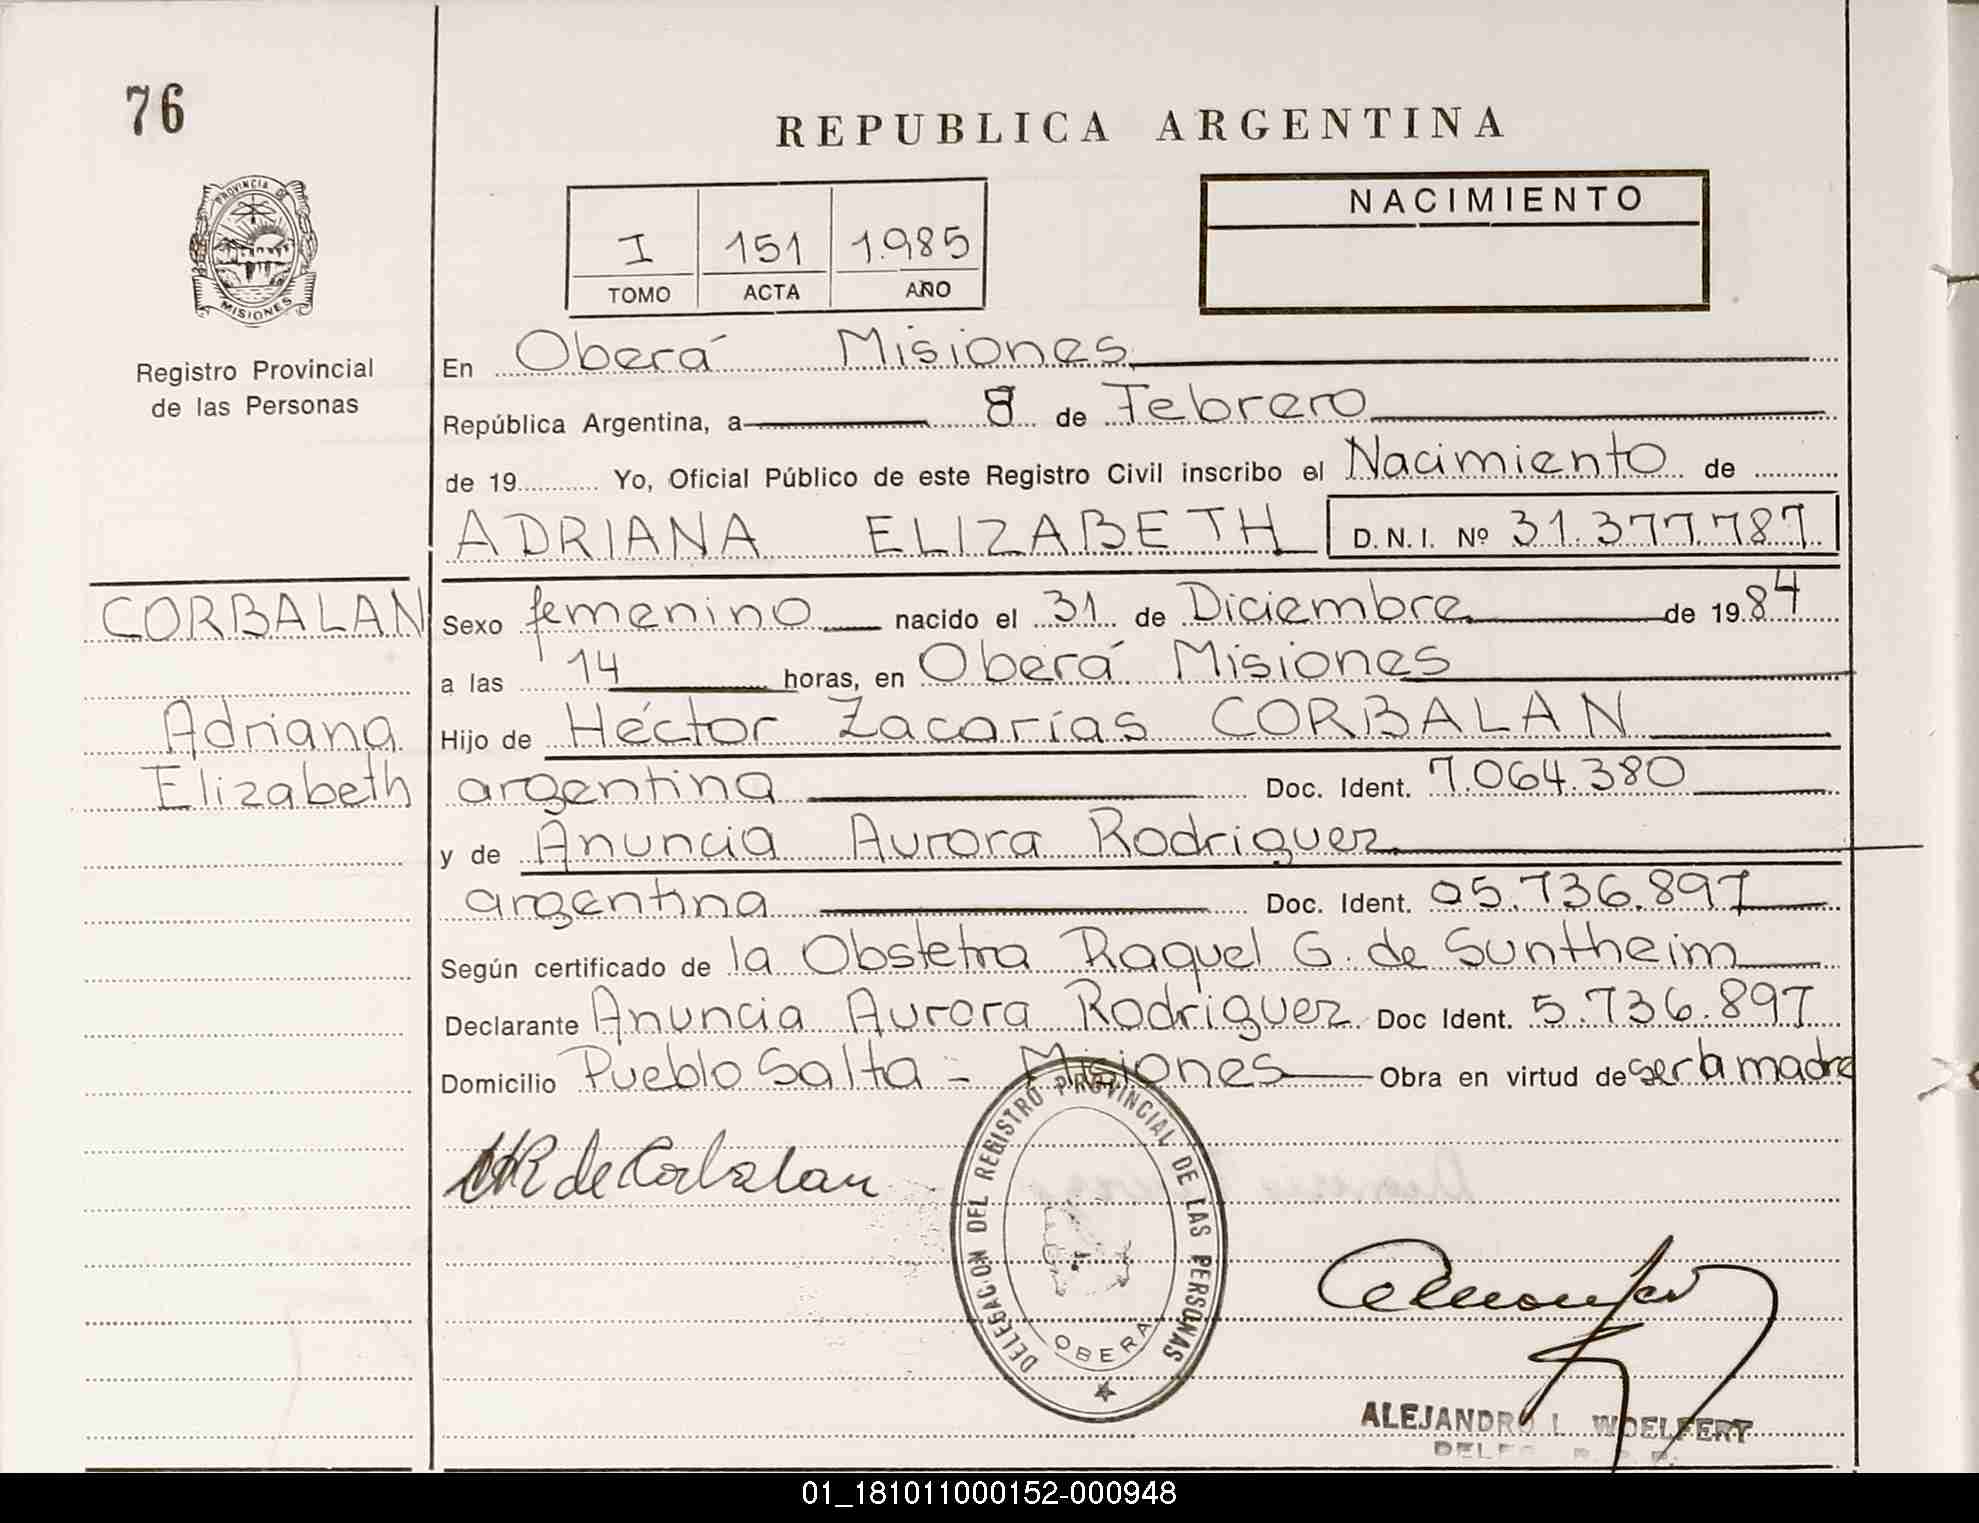 76
REPUBLICA ARGENTINA
PROVINCIA DE
MISIONES
Registro Provincial
de las Personas
I 151 1.985
TOMO ACTA AÑO
NACIMIENTO
En Oberá Misiones
República Argentina, a 8 de Febrero
de 19 Yo, Oficial Público de este Registro Civil inscribo el Nacimiento de
ADRIANA ELIZABETH D.N.I. Nº 31.377.787
CORBALAN
Adriana
Elizabeth
Sexo femenino nacido el 31 de Diciembre de 1984
a las 14 horas, en Oberá Misiones
Hijo de Héctor Zacarías CORBALAN
argentina Doc. Ident. 7.064.380
y de Anuncia Aurora Rodriguez
argentina Doc. Ident. 05.736.897
Según certificado de la Obstetra Raquel G. de Suntheim
Declarante Anuncia Aurora Rodriguez Doc Ident. 5.736.897
Domicilio Pueblo Salta - Misiones Obra en virtud de ser la madre
de Corbalan
DELEGACION DEL REGISTRO PROVINCIAL DE LAS PERSONAS
OBERA
ALEJANDRO L. WOELFERT
01_181011000152-000948